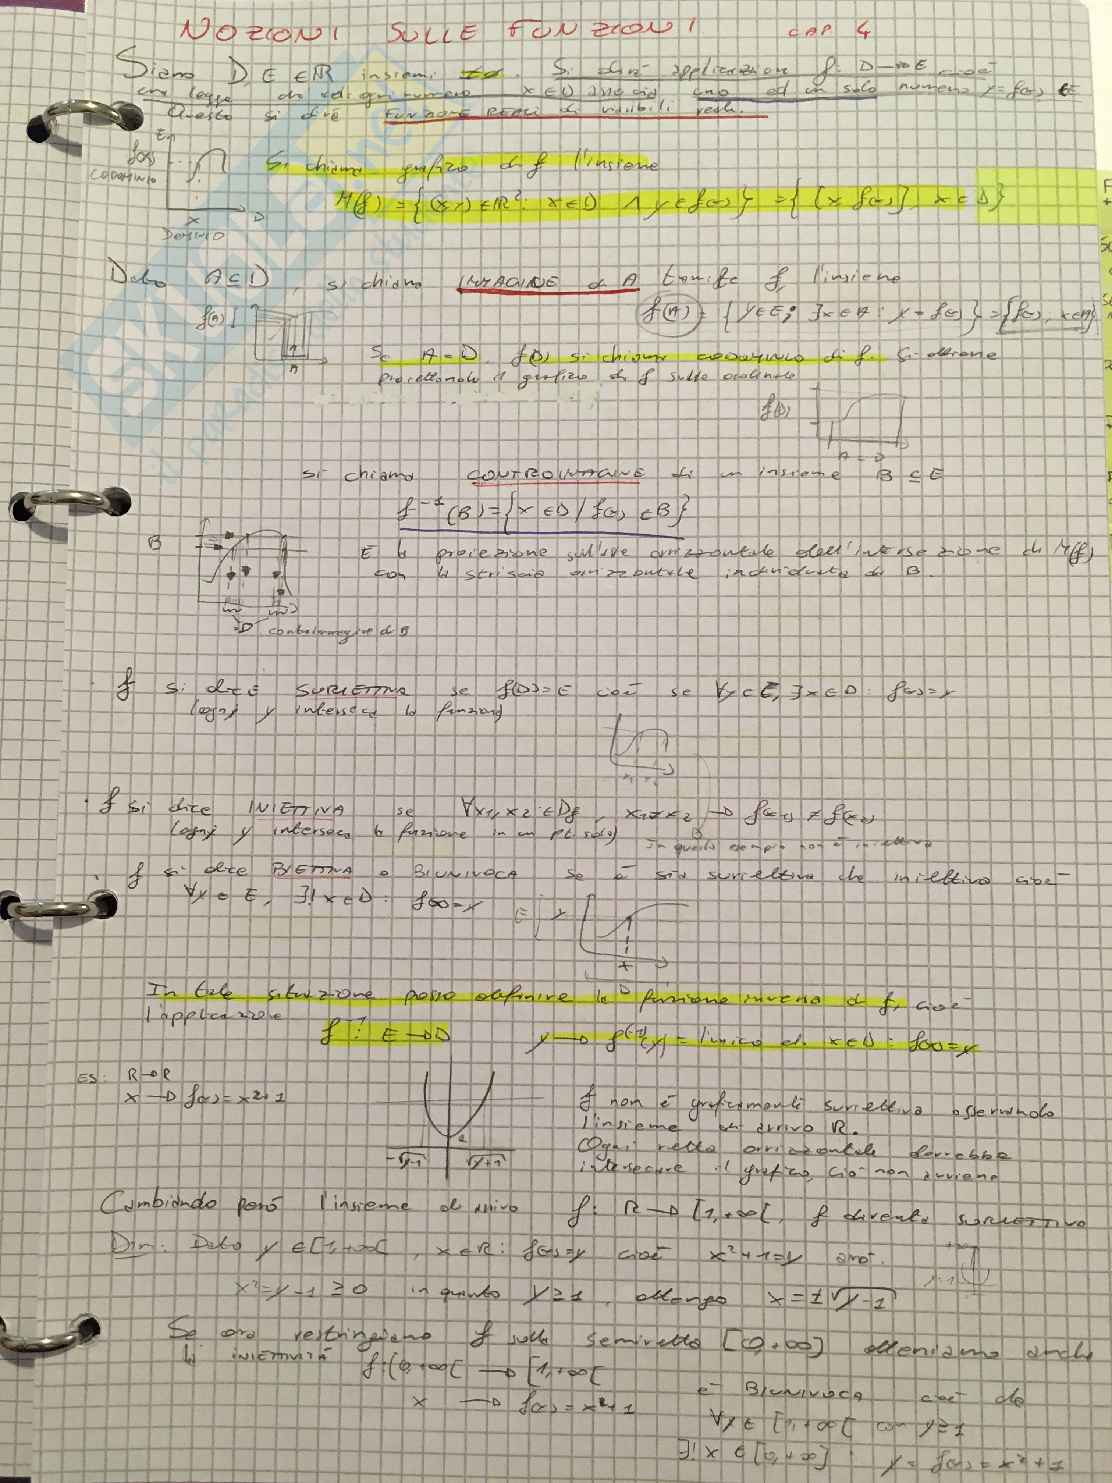 NOZIONI SULLE FUNZIONI CAP 4
Siano D, E ∈ ℝ insiemi ≠ø. Si dice applicazione f: D→E cioè
una legge che ad ogni numero x∈D associa uno ed un solo numero y=f(x) ∈E
Questo si dice FUNZIONE REALE di variabili reali.
E
f(x)
CODOMINIO
x D
DOMINIO
Si chiama grafico di f l'insieme
M(f) = {(x,y) ∈ℝ²: x∈D ∧ y∈f(x)} = {[x f(x)], x∈D}
Dato A⊆D, si chiama IMMAGINE di A tramite f, l'insieme
f(A) = {y∈E; ∃x∈A: y=f(x)} = {f(x), x∈A}
f(A)
A
Se A=D, f(D) si chiama CODOMINIO di f. Si ottiene
proiettando il grafico di f sulle ordinate
f(D)
A = D
Si chiama CONTROIMMAGINE di un insieme B⊆E
f⁻¹(B)={x∈D/f(x)∈B}
B
E la proiezione sull'asse orizzontale dell'intersezione di M(f)
con la striscia orizzontale individuata da B
controimmagine di B
f si dice SURIETTIVA se f(D)=E cioè se ∀y∈E, ∃x∈D: f(x)=y
(ogni y interseca la funzione)
f si dice INIETTIVA se ∀x₁,x₂∈Df, x₁≠x₂ → f(x₁)≠f(x₂)
(ogni y interseca la funzione in un pt. solo)
In questo esempio non è iniettiva
f si dice BIETTIVA o BIUNIVOCA se è sia suriettiva che iniettiva cioè
∀y∈E, ∃!x∈D: f(x)=y
E y
x
D
In tale situazione posso definire la funzione inversa di f, cioè
l'applicazione
f⁻¹: E→D y→f⁽⁻¹⁾(y)= l'unico di x∈D: f(x)=y
ES: R→R
x→f(x)=x²+1
-√y-1 √y+1
f non è graficamente suriettiva osservando
l'insieme di arrivo R.
Ogni retta orizzontale dovrebbe
intersecare il grafico, ciò non avviene
Cambiando però l'insieme di arrivo f: R→[1,+∞[, f diventa SURIETTIVO
Dim: Dato y∈[1,+∞[, x∈R: f(x)=y cioè x²+1=y avrò.
x²=y-1≥0 in quanto y≥1, ottengo x=±√y-1
Se ora restringiamo f sulla semiretta [0,+∞) otteniamo anche
la INIETTIVITÀ f:[0,+∞[ → [1,+∞[
x → f(x)=x²+1
è BIUNIVOCA cioè da
∀y∈[1,+∞[ con y≥1
∃!x∈[0,+∞]: y=f(x)=x²+1